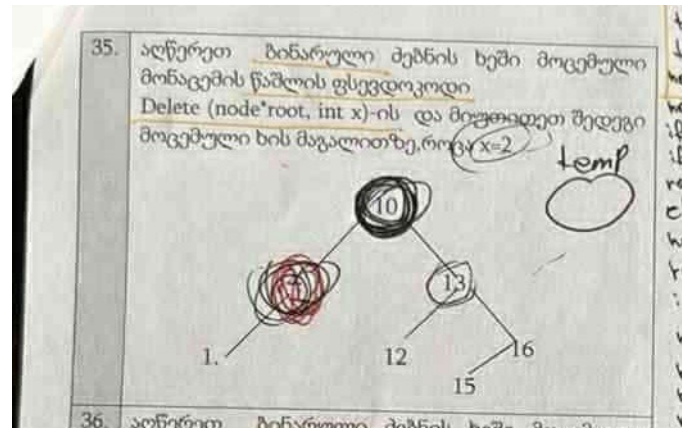 35. აღწერეთ ბინარული ძებნის ხეში მოცემული
მონაცემის წაშლის ფსევდოკოდი
Delete (node*root, int x)-ის და მიუთითეთ შედეგი
მოცემული ხის მაგალითზე,როცა x=2
temp
10
13
1. 12 16
15
36. აღწერეთ ბინარული ძებნის ხეში